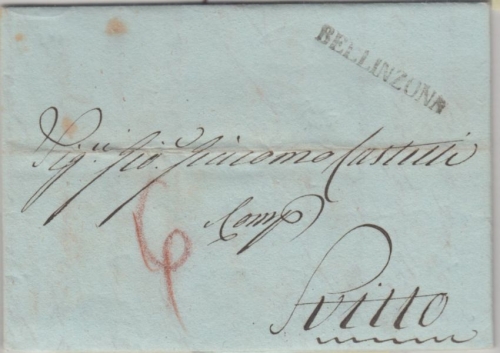 BELLINZONA
Sig.ri Gio. Giacomo Castelli
Comp
6
Svitto